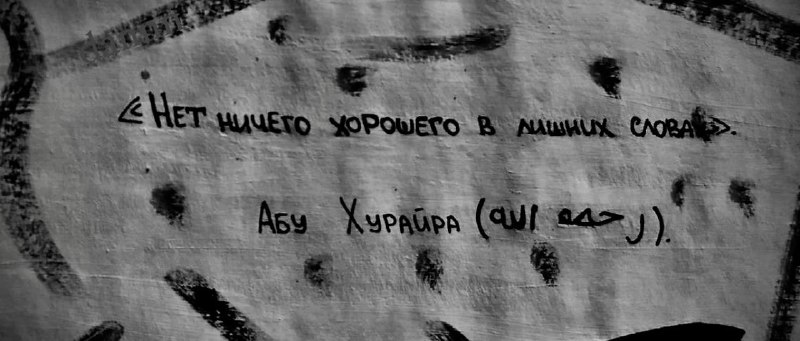 «Нет ничего хорошего в лишних словах».
Абу Хурайра (رحمه الله).